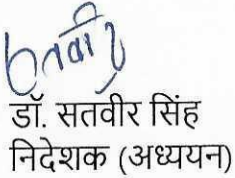 सतवीर
डॉ. सतवीर सिंह
निदेशक (अध्ययन)